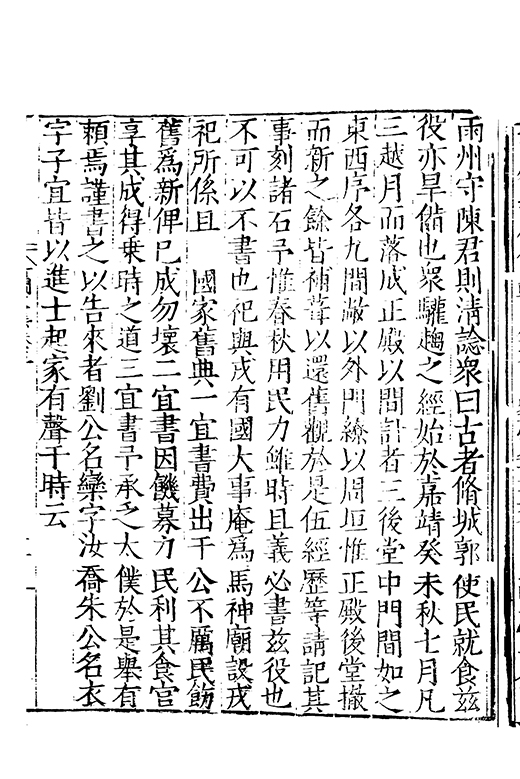 雨州守陳君則清諗衆曰古者脩城郭使民就食兹
役亦旱備也衆驩趨之經始於嘉靖癸未秋七月凡
三越月而落成正殿以間計者三後堂中門間如之
東西序各九間敞以外門繚以周垣惟正殿後堂撤
而新之餘皆補葺以還舊觀於是伍經歷等請記其
事刻諸石予惟春秋用民力雖時且義必書兹役也
不可以不書也祀與戎有國大事庵為馬神廟設戎
祀所係且　國家舊典一宜書費出于公不厲民飭
舊為新俾已成勿壞二宜書因饑募力民利其食官
享其成得乗時之道三宜書予承乏太僕於是舉有
頼焉謹書之以告來者劉公名欒字汝喬朱公名衣
字子宜皆以進士起家有聲于時云